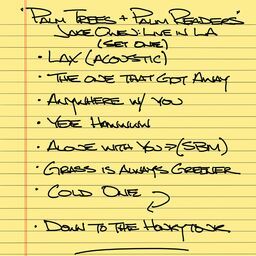 "Palm Trees + Palm Readers"
Jake Owen: Live in LA
(Set One)
• LAX (Acoustic)
• The One That Got Away
• Anywhere w/ You
• Yee Hawwwn
• Alone with You => (SBM)
• Grass is Always Greener
• Cold One
• Down to the Honkytonk